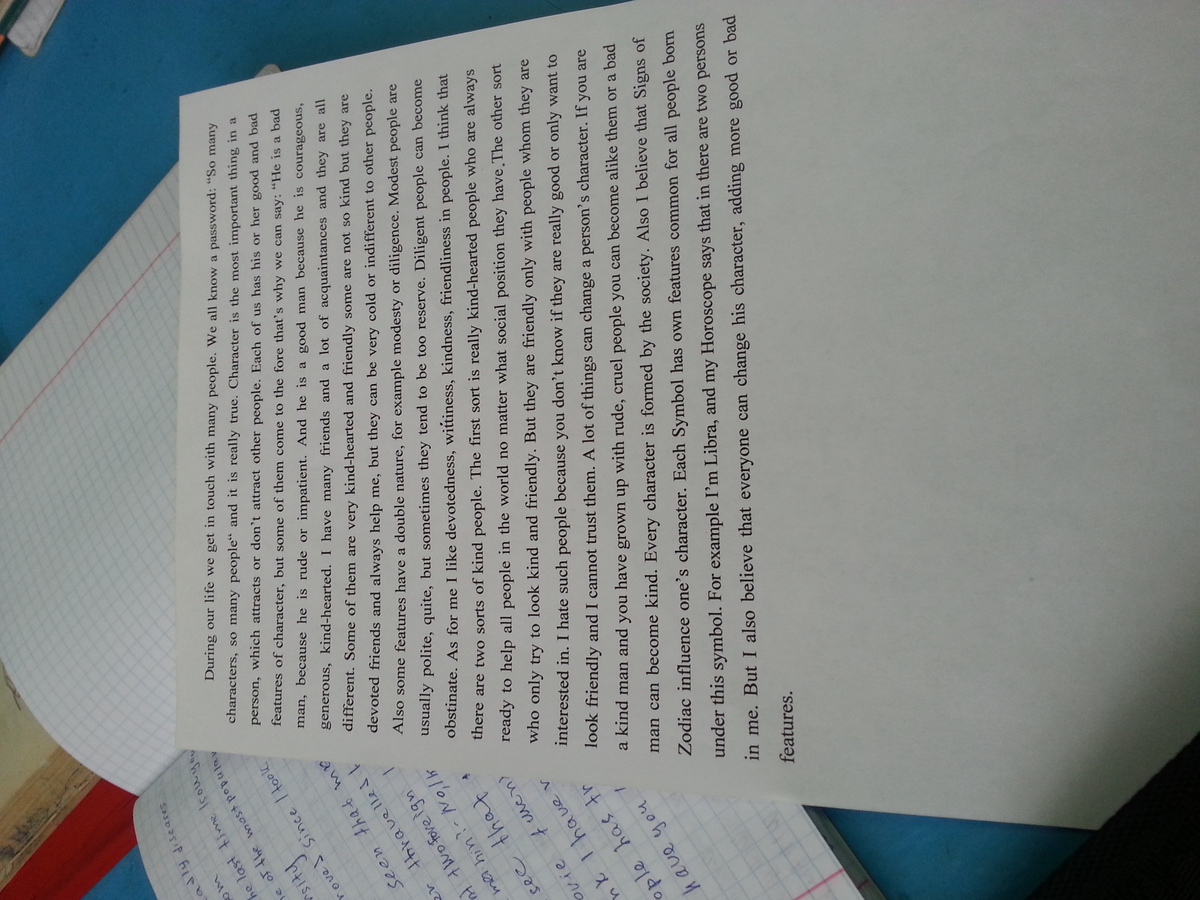 During our life we get in touch with many people. We all know a password: "So many
characters, so many people" and it is really true. Character is the most important thing in a
person, which attracts or don't attract other people. Each of us has his or her good and bad
features of character, but some of them come to the fore that's why we can say: "He is a bad
man, because he is rude or impatient. And he is a good man because he is courageous,
generous, kind-hearted. I have many friends and a lot of acquaintances and they are all
different. Some of them are very kind-hearted and friendly some are not so kind but they are
devoted friends and always help me, but they can be very cold or indifferent to other people.
Also some features have a double nature, for example modesty or diligence. Modest people are
usually polite, quite, but sometimes they tend to be too reserve. Diligent people can become
obstinate. As for me I like devotedness, wittiness, kindness, friendliness in people. I think that
there are two sorts of kind people. The first sort is really kind-hearted people who are always
ready to help all people in the world no matter what social position they have.The other sort
who only try to look kind and friendly. But they are friendly only with people whom they are
interested in. I hate such people because you don't know if they are really good or only want to
look friendly and I cannot trust them. A lot of things can change a person's character. If you are
a kind man and you have grown up with rude, cruel people you can become alike them or a bad
man can become kind. Every character is formed by the society. Also I believe that Signs of
Zodiac influence one's character. Each Symbol has own features common for all people born
under this symbol. For example I'm Libra, and my Horoscope says that in there are two persons
in me. But I also believe that everyone can change his character, adding more good or bad
features.
diseases
he last time
ne of the most popular
since I took
seen that
travelled
two foreign
see that
I have
ople has
have you